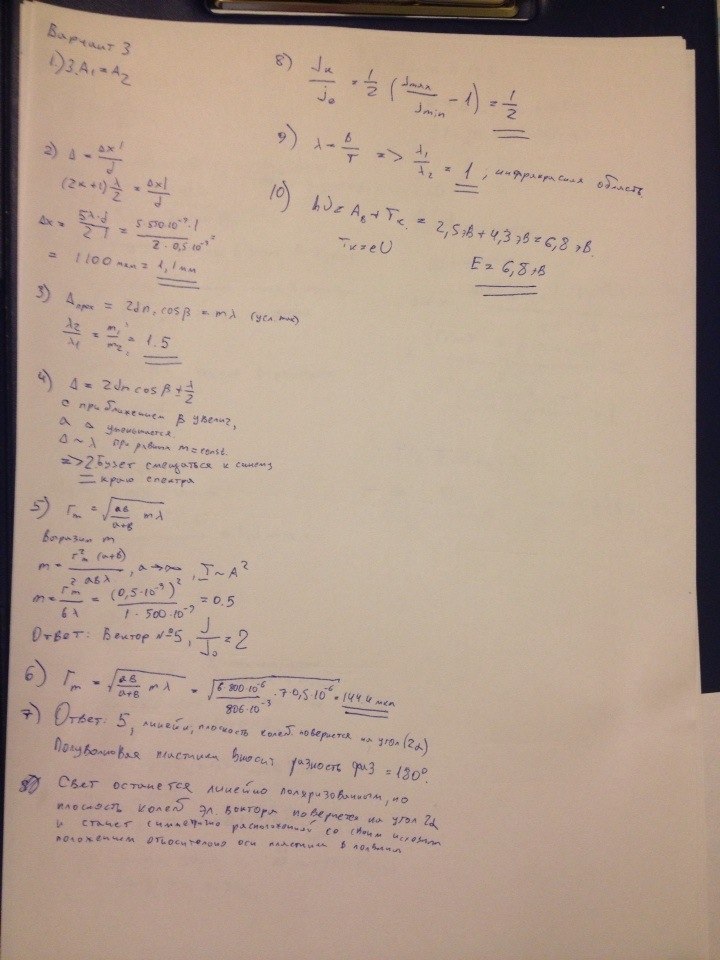 Вариант 3
1.) 3. A₁ = A₂
2) Δ = Δxl/d
(2k+1) λ/2 = Δxl/d
Δx = 5λ·d/2·l = 5·550·10⁻⁹·1/2·0,5·10⁻³ =
= 1100 мкм = 1,1 мм
3) Δпрох = 2dn, cosβ = mλ (усл. max)
λ₂/λ₁ = m₁/m₂ = 1.5
4) Δ = 2dn cosβ ± λ/2
с приближением β увелич,
а Δ уменьшается.
Δ ~ λ при равных m = const.
=> 2 Будет смещаться к синему
краю спектра
5) rₘ = √(ab/(a+b) mλ)
Выразим m
m = r²ₘ(a+b)/abλ, a→∞, I ~ A²
m = r²ₘ/bλ = (0,5·10⁻³)²/1·500·10⁻⁹ = 0.5
Ответ: Вектор №5, J/J₀ = 2
6) rₘ = √(ab/(a+b) mλ) = √(6·800·10⁻⁶/806·10⁻³ · 7·0,5·10⁻⁶) = 144.4 мкм
7) Ответ: 5, линейн, плоскость колеб повернется на угол (2α)
Полуволновая пластинка вносит разность фаз = 180°.
Свет останется линейно поляризованным, но
плоскость колеб эл. вектора повернется на угол 2α
и станет симметрично расположенной со своим исходным
положением относительно оси пластинки
8) Jк/J₀ = 1/2 (Jmax/Jmin − 1) = 1/2
9) λ = b/T => λ₁/λ₂ = 1, инфракрасная область
10) hν = Aв + Tк = 2,5 эВ + 4,3 эВ = 6,8 эВ.
Tк = eU
E = 6,8 эВ